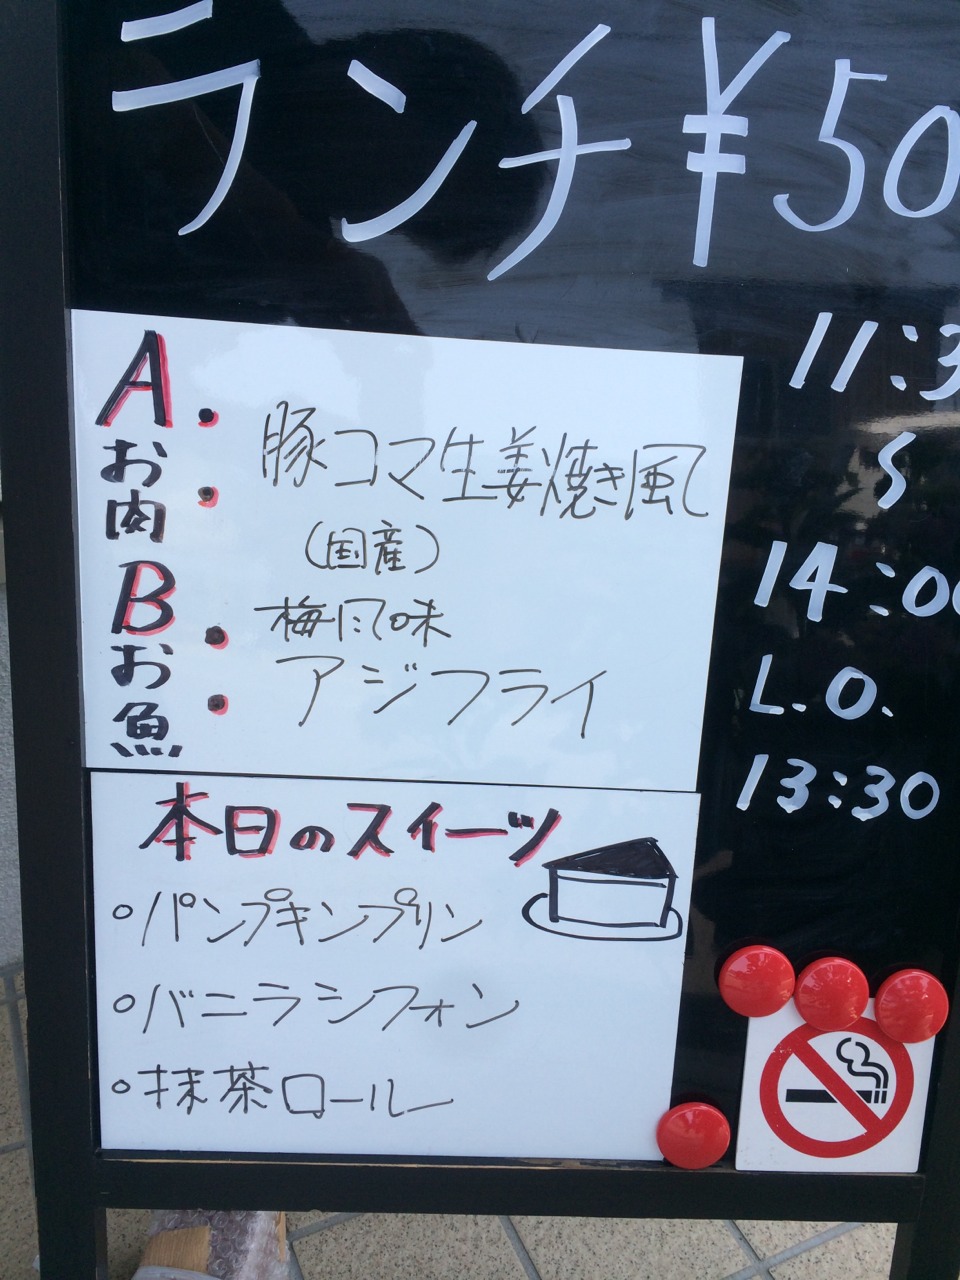 ランチ¥50
A: 豚コマ生姜焼き風
お肉 (国産)
B: 梅風味
お魚 アジフライ
11:3
〜
14:00
L.O.
13:30
本日のスイーツ
○パンプキンプリン
○バニラシフォン
○抹茶ロール